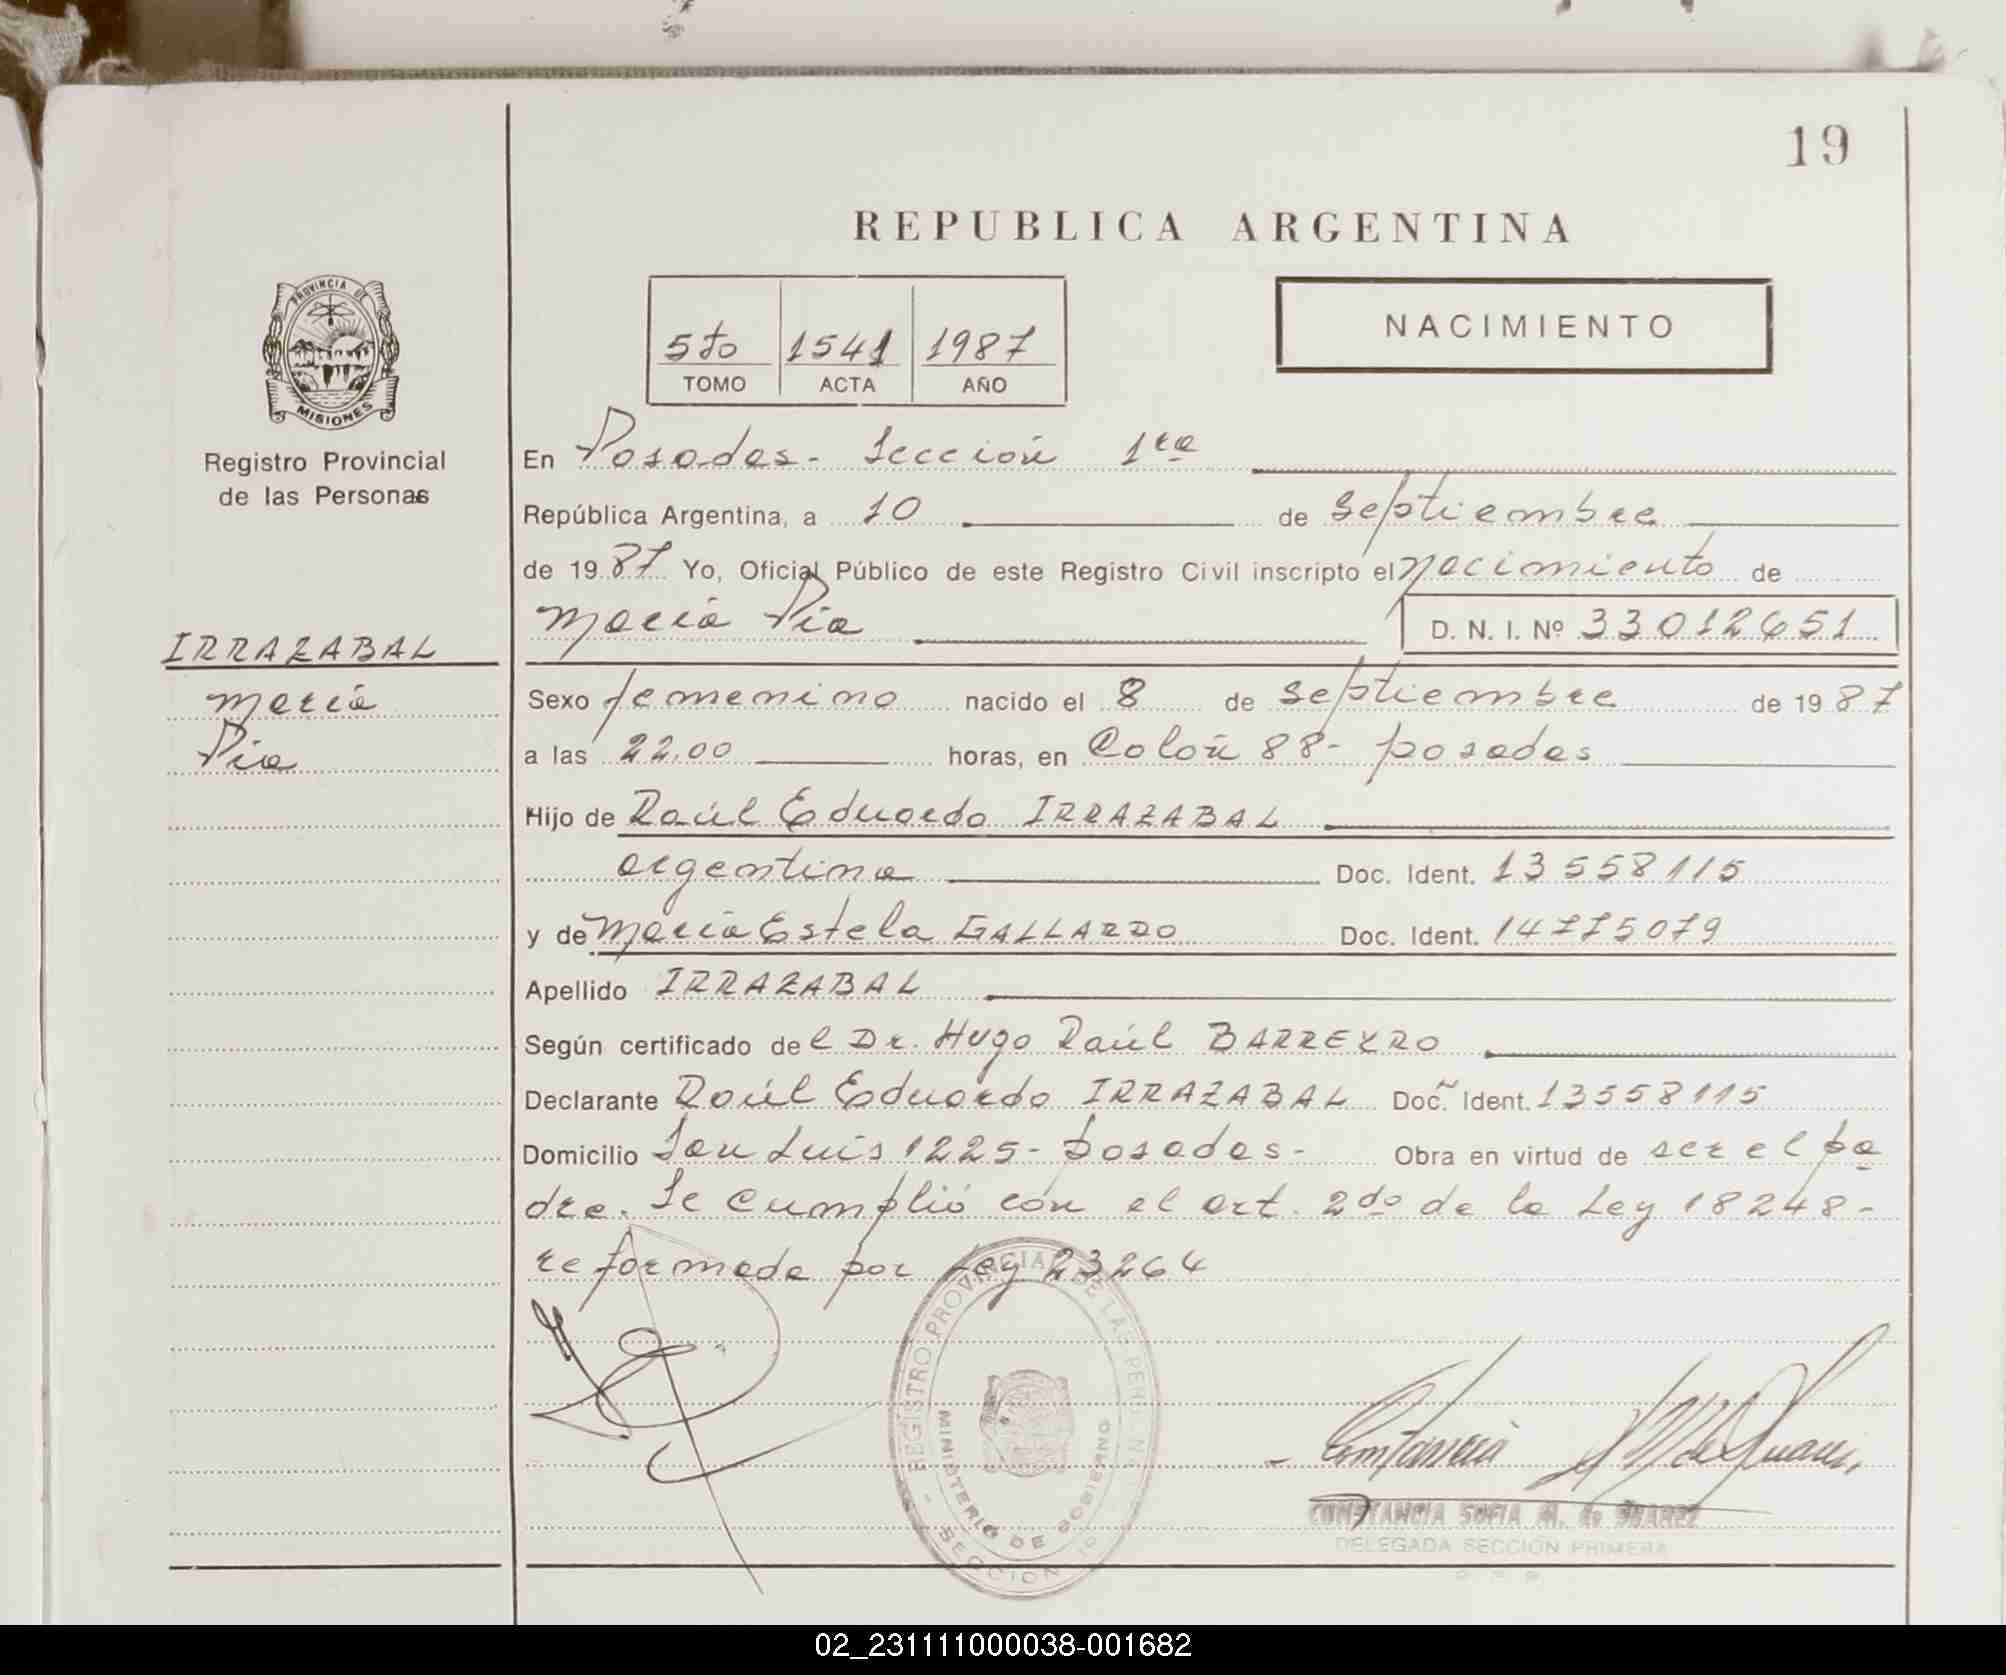 19
REPUBLICA ARGENTINA
PROVINCIA DE
MISIONES
5to 1541 1987
TOMO ACTA AÑO
NACIMIENTO
Registro Provincial
de las Personas
En Posadas - Sección 1ra
República Argentina, a 10 de septiembre
de 1987 Yo, Oficial Público de este Registro Civil inscripto el nacimiento de
María Pía D. N. I. Nº 33012651
IRRAZABAL
María
Pía
Sexo femenino nacido el 8 de septiembre de 1987
a las 22,00 horas, en Colón 88 - posadas
Hijo de Raúl Eduardo IRRAZABAL
argentina Doc. Ident. 13 558 115
y de María Estela GALLARDO Doc. Ident. 14775079
Apellido IRRAZABAL
Según certificado del Dr. Hugo Raúl BARREYRO
Declarante Raúl Eduardo IRRAZABAL Doc. Ident. 13558115
Domicilio San Luis 1225 - posadas - Obra en virtud de ser el pa
dre. Se cumplió con el art. 2do de la Ley 18248 -
reformada por Ley 23264
REGISTRO PROVINCIAL DE LAS PERSONAS
MINISTERIO DE GOBIERNO
SECCION
CONSTANCIA SOFIA M. de SUAREZ
DELEGADA SECCION PRIMERA
02_231111000038-001682